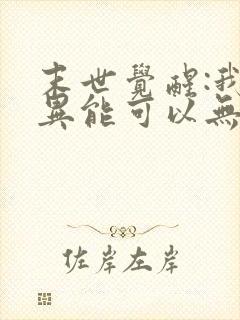 末世覺醒:我
異能可以無
佐岸左岸